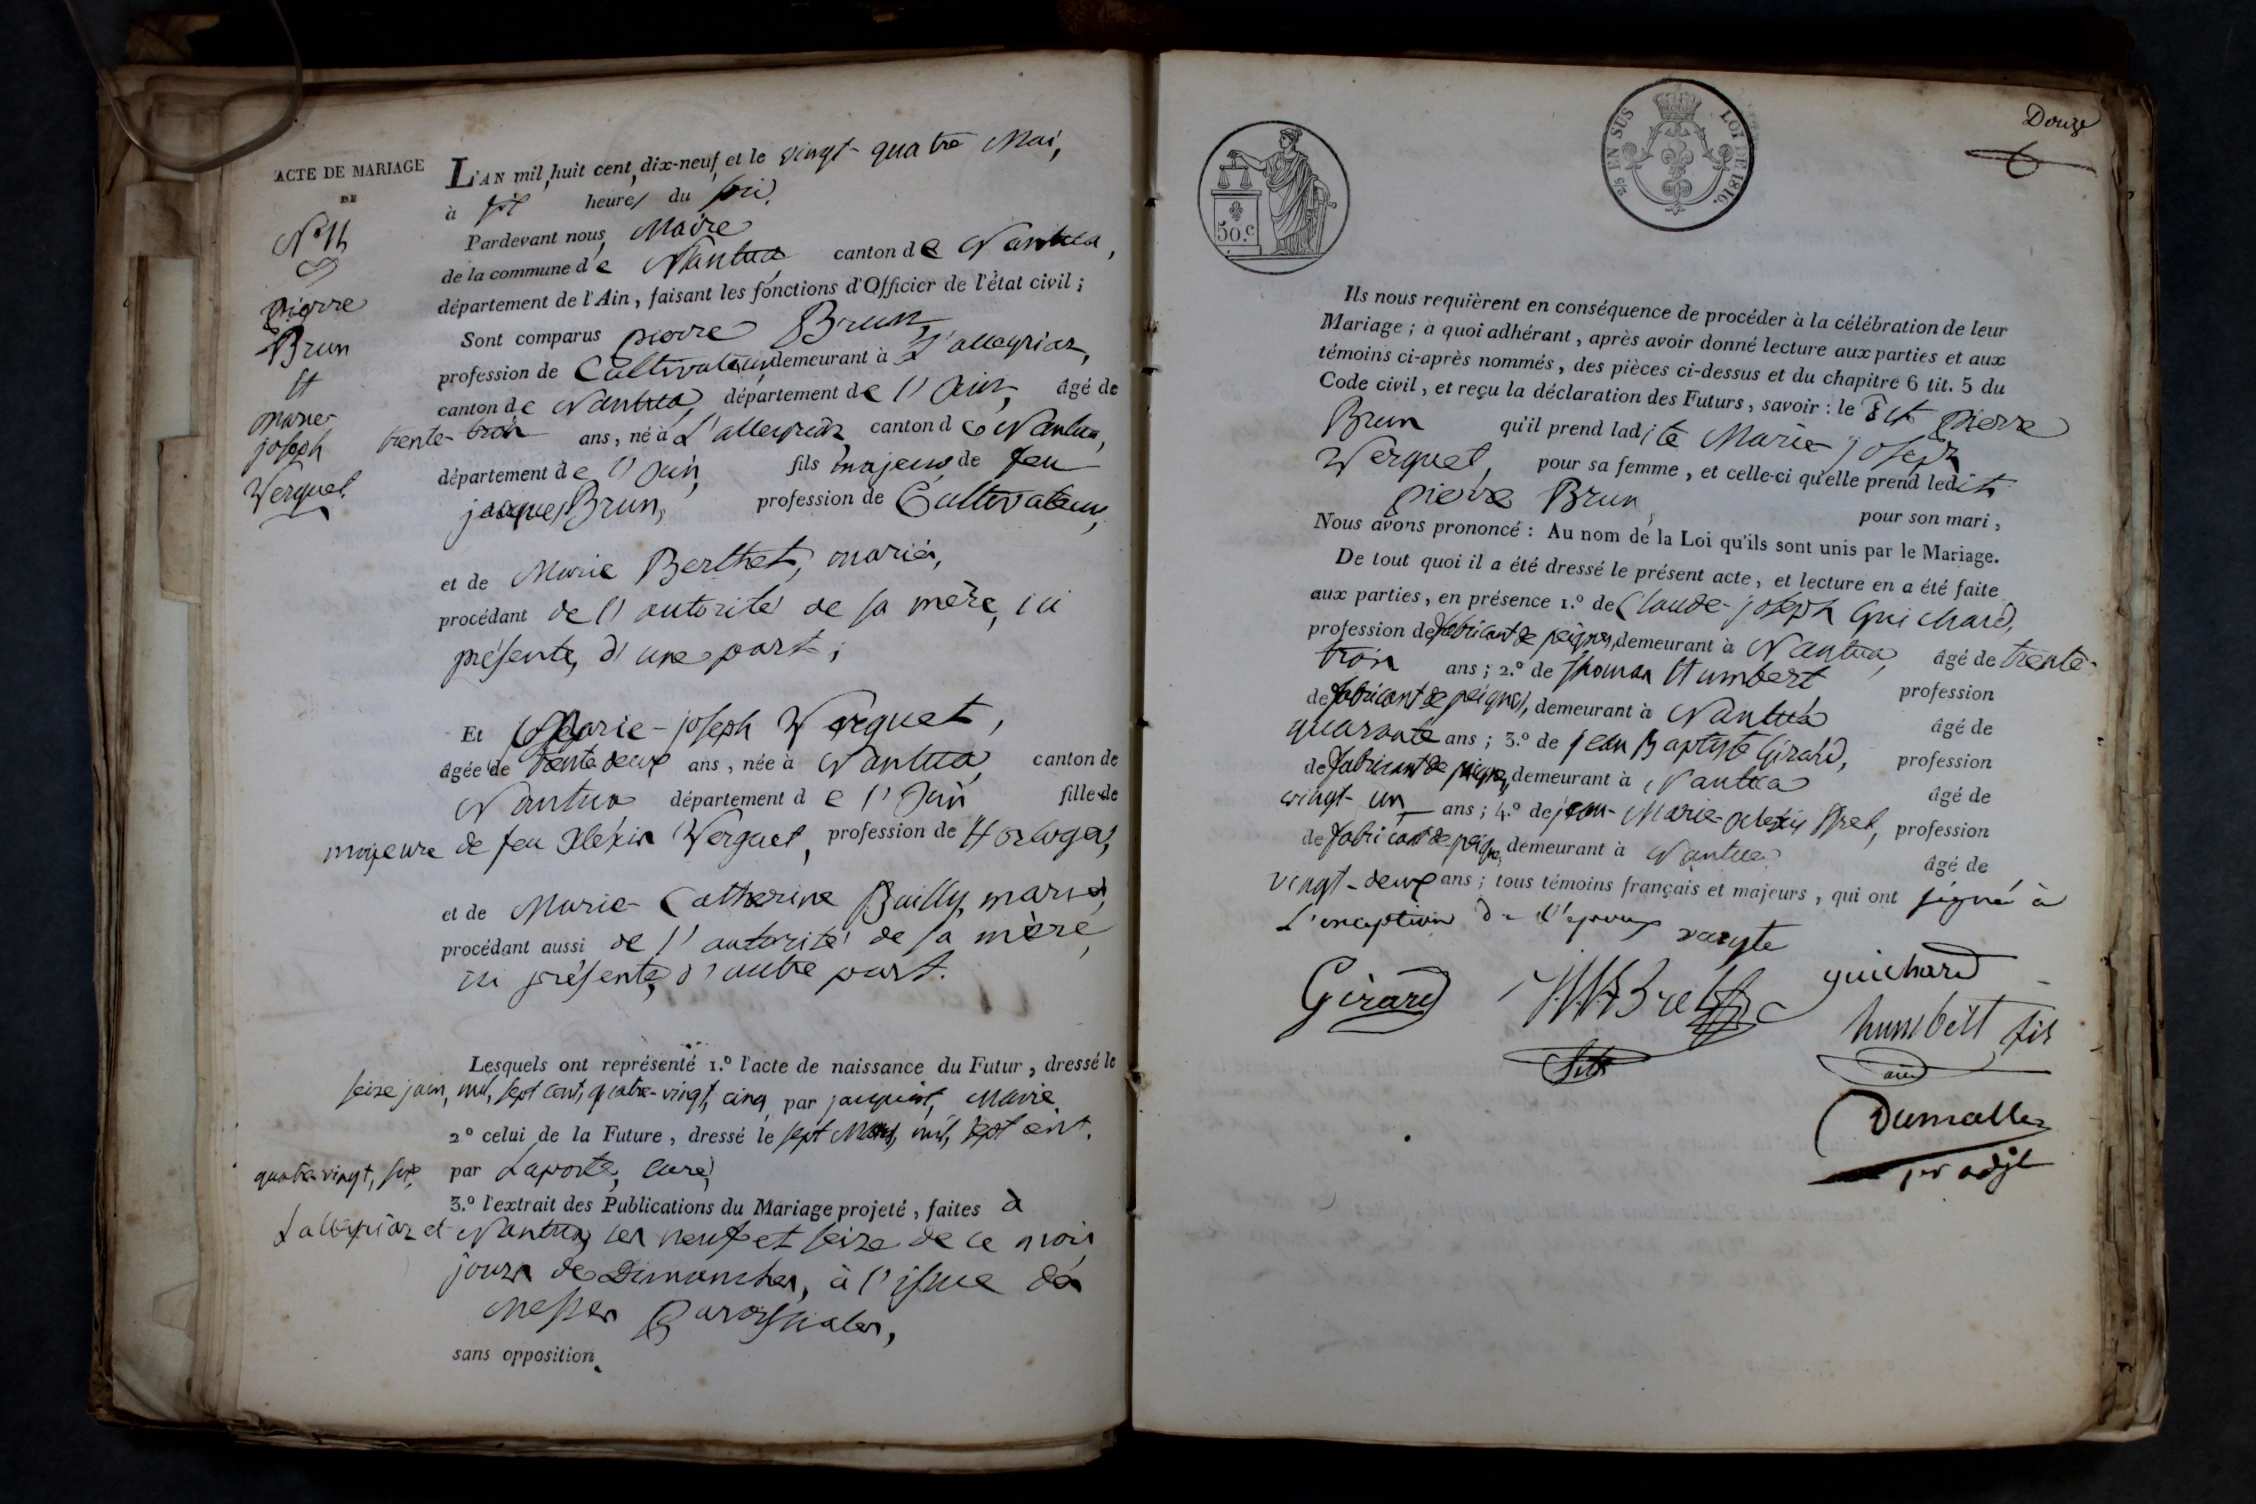 ACTE DE MARIAGE
DE
N° 11
Pierre
Brun
Et
Marie
joseph
Verguet
L'AN mil huit cent dix-neuf et le vingt-quatre Mai,
à six heures du soir,
Pardevant nous Maire
de la commune de Nantua canton de Nantua,
département de l'Ain, faisant les fonctions d'Officier de l'état civil;
Sont comparus pierre Brun,
profession de Cultivateur, demeurant à L'alleyriaz,
canton de Nantua, département de l'Ain, âgé de
trente-trois ans, né à L'alleyriaz canton de Nantua,
département de l'Ain, fils majeur de feu
jacques Brun, profession de Cultivateur,
et de Marie Berthet, mariés,
procédant de l'autorité de sa mère, ici
présente, d'une part;
Et Marie-joseph Verguet,
âgée de trente deux ans, née à Nantua, canton de
Nantua département de l'Ain fille de
majeure de feu Alexis Verguet, profession de Horloger,
et de Marie-Catherine Bailly, mariés,
procédant aussi de l'autorité de sa mère,
ici présente, d'autre part.
Lesquels ont représenté 1.º l'acte de naissance du Futur, dressé le
seize juin, mil, sept cent, quatre-vingt, cinq par jacquinot, Maire
2º celui de la Future, dressé le sept Mars, mil, sept cent,
quatre-vingt, sept par Laporte, curé,
3.º l'extrait des Publications du Mariage projeté, faites à
Lalleyriaz et Nantua, les neuf et seize de ce mois
jours de Dimanches, à l'issue des
Messes Paroissiales,
sans opposition.
Douze
50.c
2/5 EN SUS LOI DE 1816.
Ils nous requièrent en conséquence de procéder à la célébration de leur
Mariage; à quoi adhérant, après avoir donné lecture aux parties et aux
témoins ci-après nommés, des pièces ci-dessus et du chapitre 6 tit. 5 du
Code civil, et reçu la déclaration des Futurs, savoir: le dit pierre
Brun qu'il prend ladite Marie-joseph
Verguet, pour sa femme, et celle-ci qu'elle prend ledit
pierre Brun, pour son mari,
Nous avons prononcé: Au nom de la Loi qu'ils sont unis par le Mariage.
De tout quoi il a été dressé le présent acte, et lecture en a été faite
aux parties, en présence 1.º de Claude-joseph Guichard,
profession de fabricant de peignes, demeurant à Nantua, âgé de trente-
trois ans; 2.º de thomas Humbert profession
de fabricant de peignes, demeurant à Nantua âgé de
quarante ans; 3.º de jean Baptiste Girard, profession
de fabricant de peignes, demeurant à Nantua âgé de
vingt-un ans; 4.º de jean-Marie-alexis Bret, profession
de fabricant de peignes, demeurant à Nantua âgé de
vingt-deux ans; tous témoins français et majeurs, qui ont signé à
L'exception de l'epoux
Girard Bret guichard
humbert fils
Dumollez
1er adjt